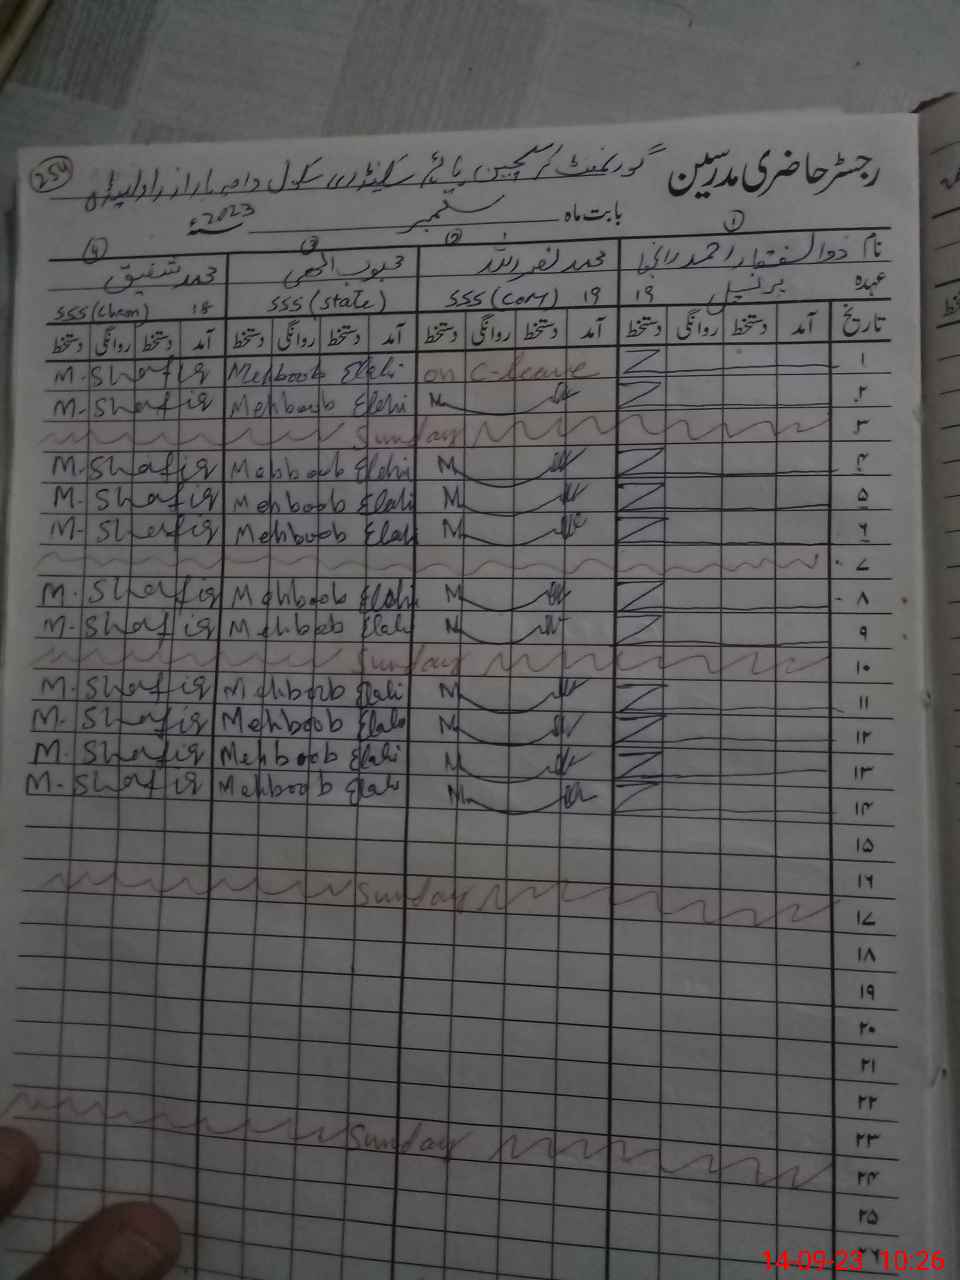 254
رجسٹر حاضری مدرسین گورنمنٹ کرسچین ہائر سیکنڈری سکول راجہ بازار راولپنڈی
بابت ماہ ستمبر 2023ء
① ② ③ ④
نام ذوالفقار احمد رانجھا محمد نصر اللہ محبوب الٰہی محمد شفیق
عہدہ پرنسپل ۱۹ ۱۹ SSS (State) SSS (Chem) ۱۸
تاریخ آمد دستخط روانگی دستخط آمد دستخط روانگی دستخط آمد دستخط روانگی دستخط آمد دستخط روانگی دستخط
۱ on C-leave Mehboob Elahi M. Shafiq
۲ Mehboob Elahi M. Shafiq
۳ Sunday
۴ Mehboob Elahi M. Shafiq
۵ Mehboob Elahi M. Shafiq
۶ Mehboob Elahi M. Shafiq
۷
۸ Mehboob Elahi M. Shafiq
۹ Mehboob Elahi M. Shafiq
۱۰ Sunday
۱۱ Mehboob Elahi M. Shafiq
۱۲ Mehboob Elahi M. Shafiq
۱۳ Mehboob Elahi M. Shafiq
۱۴ Mehboob Elahi M. Shafiq
۱۵
۱۶
۱۷ Sunday
۱۸
۱۹
۲۰
۲۱
۲۲
۲۳
۲۴ Sunday
۲۵
۲۶
14-09-23 10:26